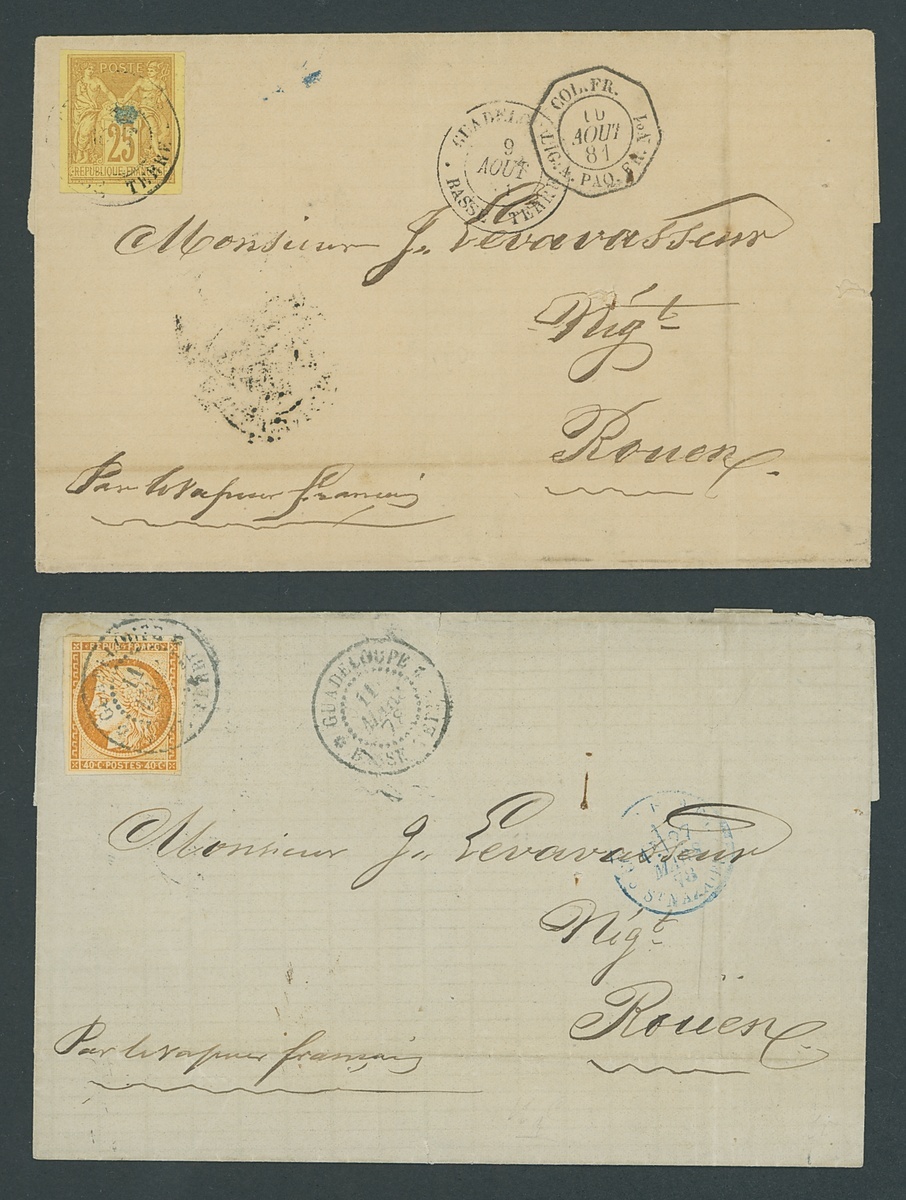 POSTE
25
REPUBLIQUE FRANC
TERRE
GUADEL
9
AOUT
BASSE TERRE
COL. FR.
10
AOUT
81
LIG. A. PAQ. FR. Nº1
Monsieur J. Levavasseur
Négt
Rouen
Par le vapeur français
REPUB. FRANC
40 C. POSTES 40 C.
11
GUADELOUPE
11
MARS
78
BASSE TERRE
27
MARS
78
ST NAZAIRE
Monsieur J. Levavasseur
Négt
Rouën
Par le vapeur français